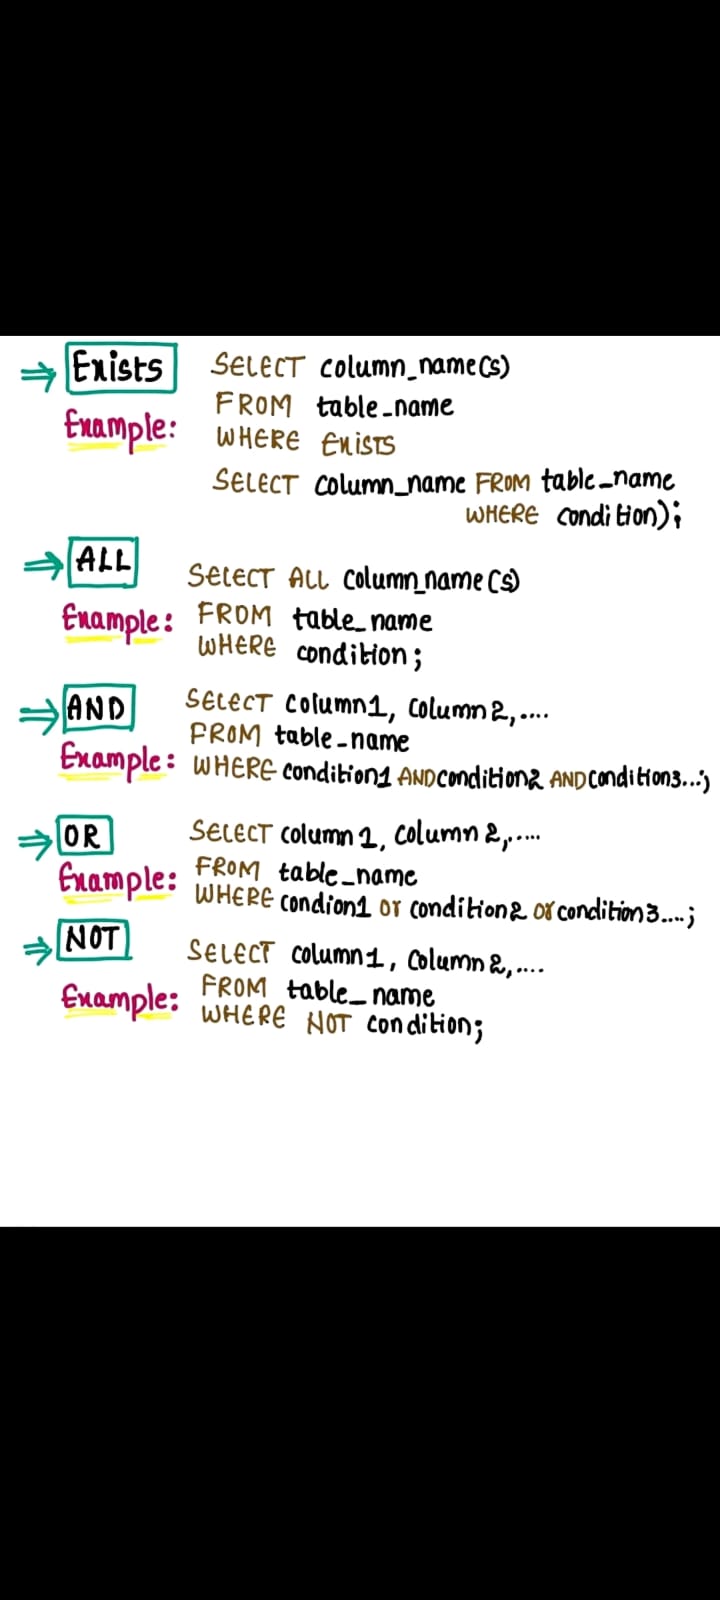 ⇒ Exists SELECT column_name(s)
FROM table_name
Example: WHERE EXISTS
SELECT column_name FROM table_name
WHERE condition);
⇒ ALL
SELECT ALL column_name(s)
Example: FROM table_name
WHERE condition;
⇒ AND SELECT column1, column2,....
FROM table_name
Example: WHERE condition1 AND condition2 AND condition3...;
⇒ OR SELECT column1, column2,....
Example: FROM table_name
WHERE condion1 or condition2 or condition3....;
⇒ NOT SELECT column1, column2,....
Example: FROM table_name
WHERE NOT condition;